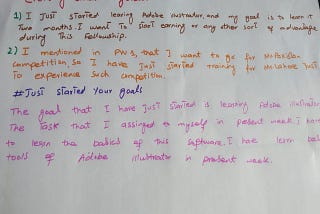 1) I Just started learing Adobe illustrator, and my goal is to learn it
Two months. I want To Sart earning or any other sort of advantage
during This Fellowship.
2) I mentioned in PW's, that I want to go for
Competition, So I have Just Started Training for Just
To experience Such competition.
# Just Started Your goals
The goal that I have Just Started is learning Adobe illustrator
The Task that I assinged to myself in present week. I have
to learn the basics of this Software. I have lern basic
tools of Adobe illustrator in present week.